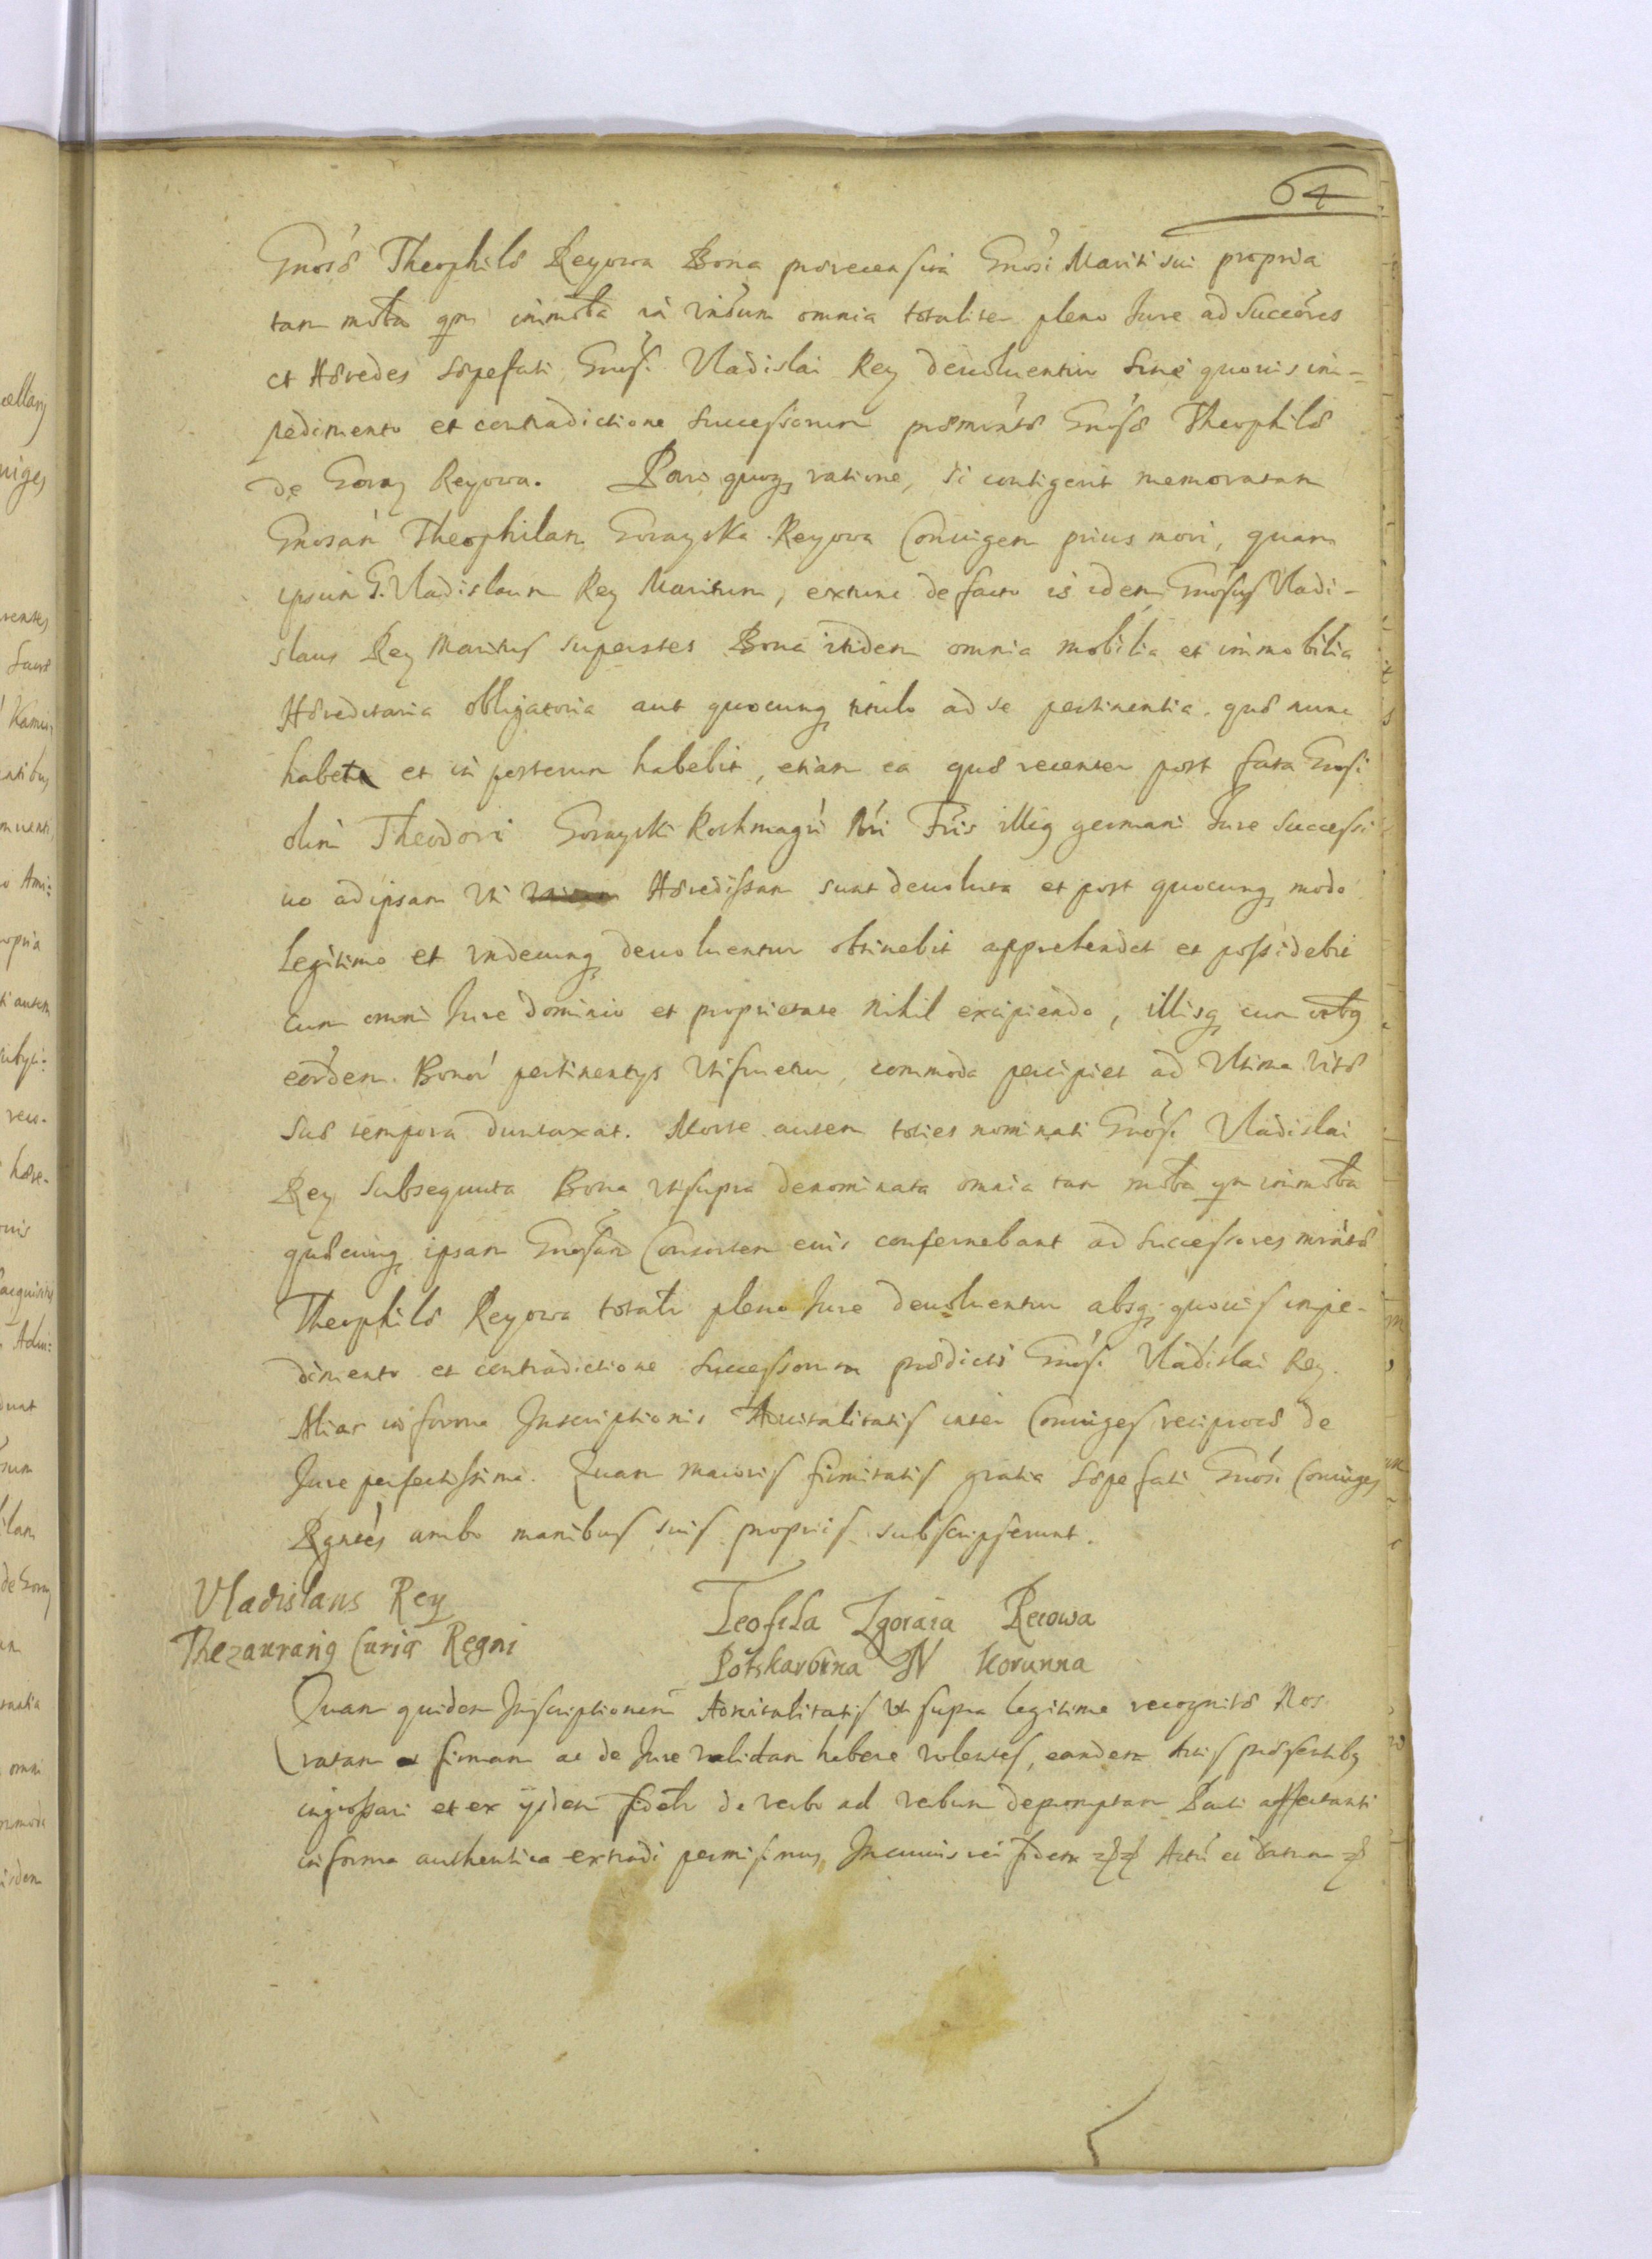 64
Gnosæ Theophilæ Reyowa Bona prærecensita Gnosi Mariti sui propria
tam mobilia qm immobilia in vnum omnia totaliter pleno Jure ad Succeores
et Hæredes Sæpefati Gnosi Vladislai Rey deuoluentur Sine quouis im-
pedimento et contradictione Successorum præmintæ Gnosæ Theophilæ
de Goray Reyowa. Pari quoq ratione, Si contigerit memoratam
Gnosam Theophilam Gorayska Reyowa Coniugem prius mori, quam
ipsum G. Vladislaum Rey Maritum, extunc de facto is idem Gnosus Vladi-
slaus Rey Maritus superstes Bona itidem omnia mobilia et immobilia
Hæreditaria obligatoria aut quocunq titulo ad se pertinentia quæ nunc
habet et in posterum habebit, etiam ea quæ recenter post fata Gnosi
olim Theodori Gorayski Rothmagri Nri Fris illius germani Jure Successi
uo ad ipsam vti Hæredissam sunt deuoluta et post quocunq modo
legitimo et vndecunq deuoluentur obtinebit apprehendet et possidebit
cum omni Jure dominio et proprietate nihil excipiendo, illisq cum
eordem Bonor pertinentys vtifruetur, commoda percipiet ad Vltima Vitæ
Suæ tempora duntaxat. Morte autem toties nominati Gnosi Vladislai
Rey Subsequuta Bona vtsupra denominata omnia tam mobilia qm immobilia
quæcunq ipsam Gnosam Consortem eius concernebant ad Successores mrintæ
Theophilæ Reyowa totalr pleno Jure deuoluentur absq quouis impe-
dimento et contradictione Successorum prædicti Gnosi Vladislai Rey.
Alias in forma Inscriptionis Aduitalitatis inter Coniuges reciprocæ de
Jure perfectissima. Quam maioris firmitatis gratia Sæpefati Gnosi Coniuges
Rgntes ambo manibus suis propriis subscripserunt.
Vladislaus Rey
Thezaurarig Curiæ Regni
Teofila Zgoraia Reiowa
Potskarbina N Korunna
Quam quidem Inscriptionem Aduitalitatis vt supra legitime recognitæ Nos
ratam et firmam ac de Jure validam habere volentes, eandem Actis præsentibq
ingrossari et ex ysdem fidelr de verbo ad verbum depromptam Parti affectanti
in forma authentica extradi permisimus, In cuius rei fidem Actũ et datum